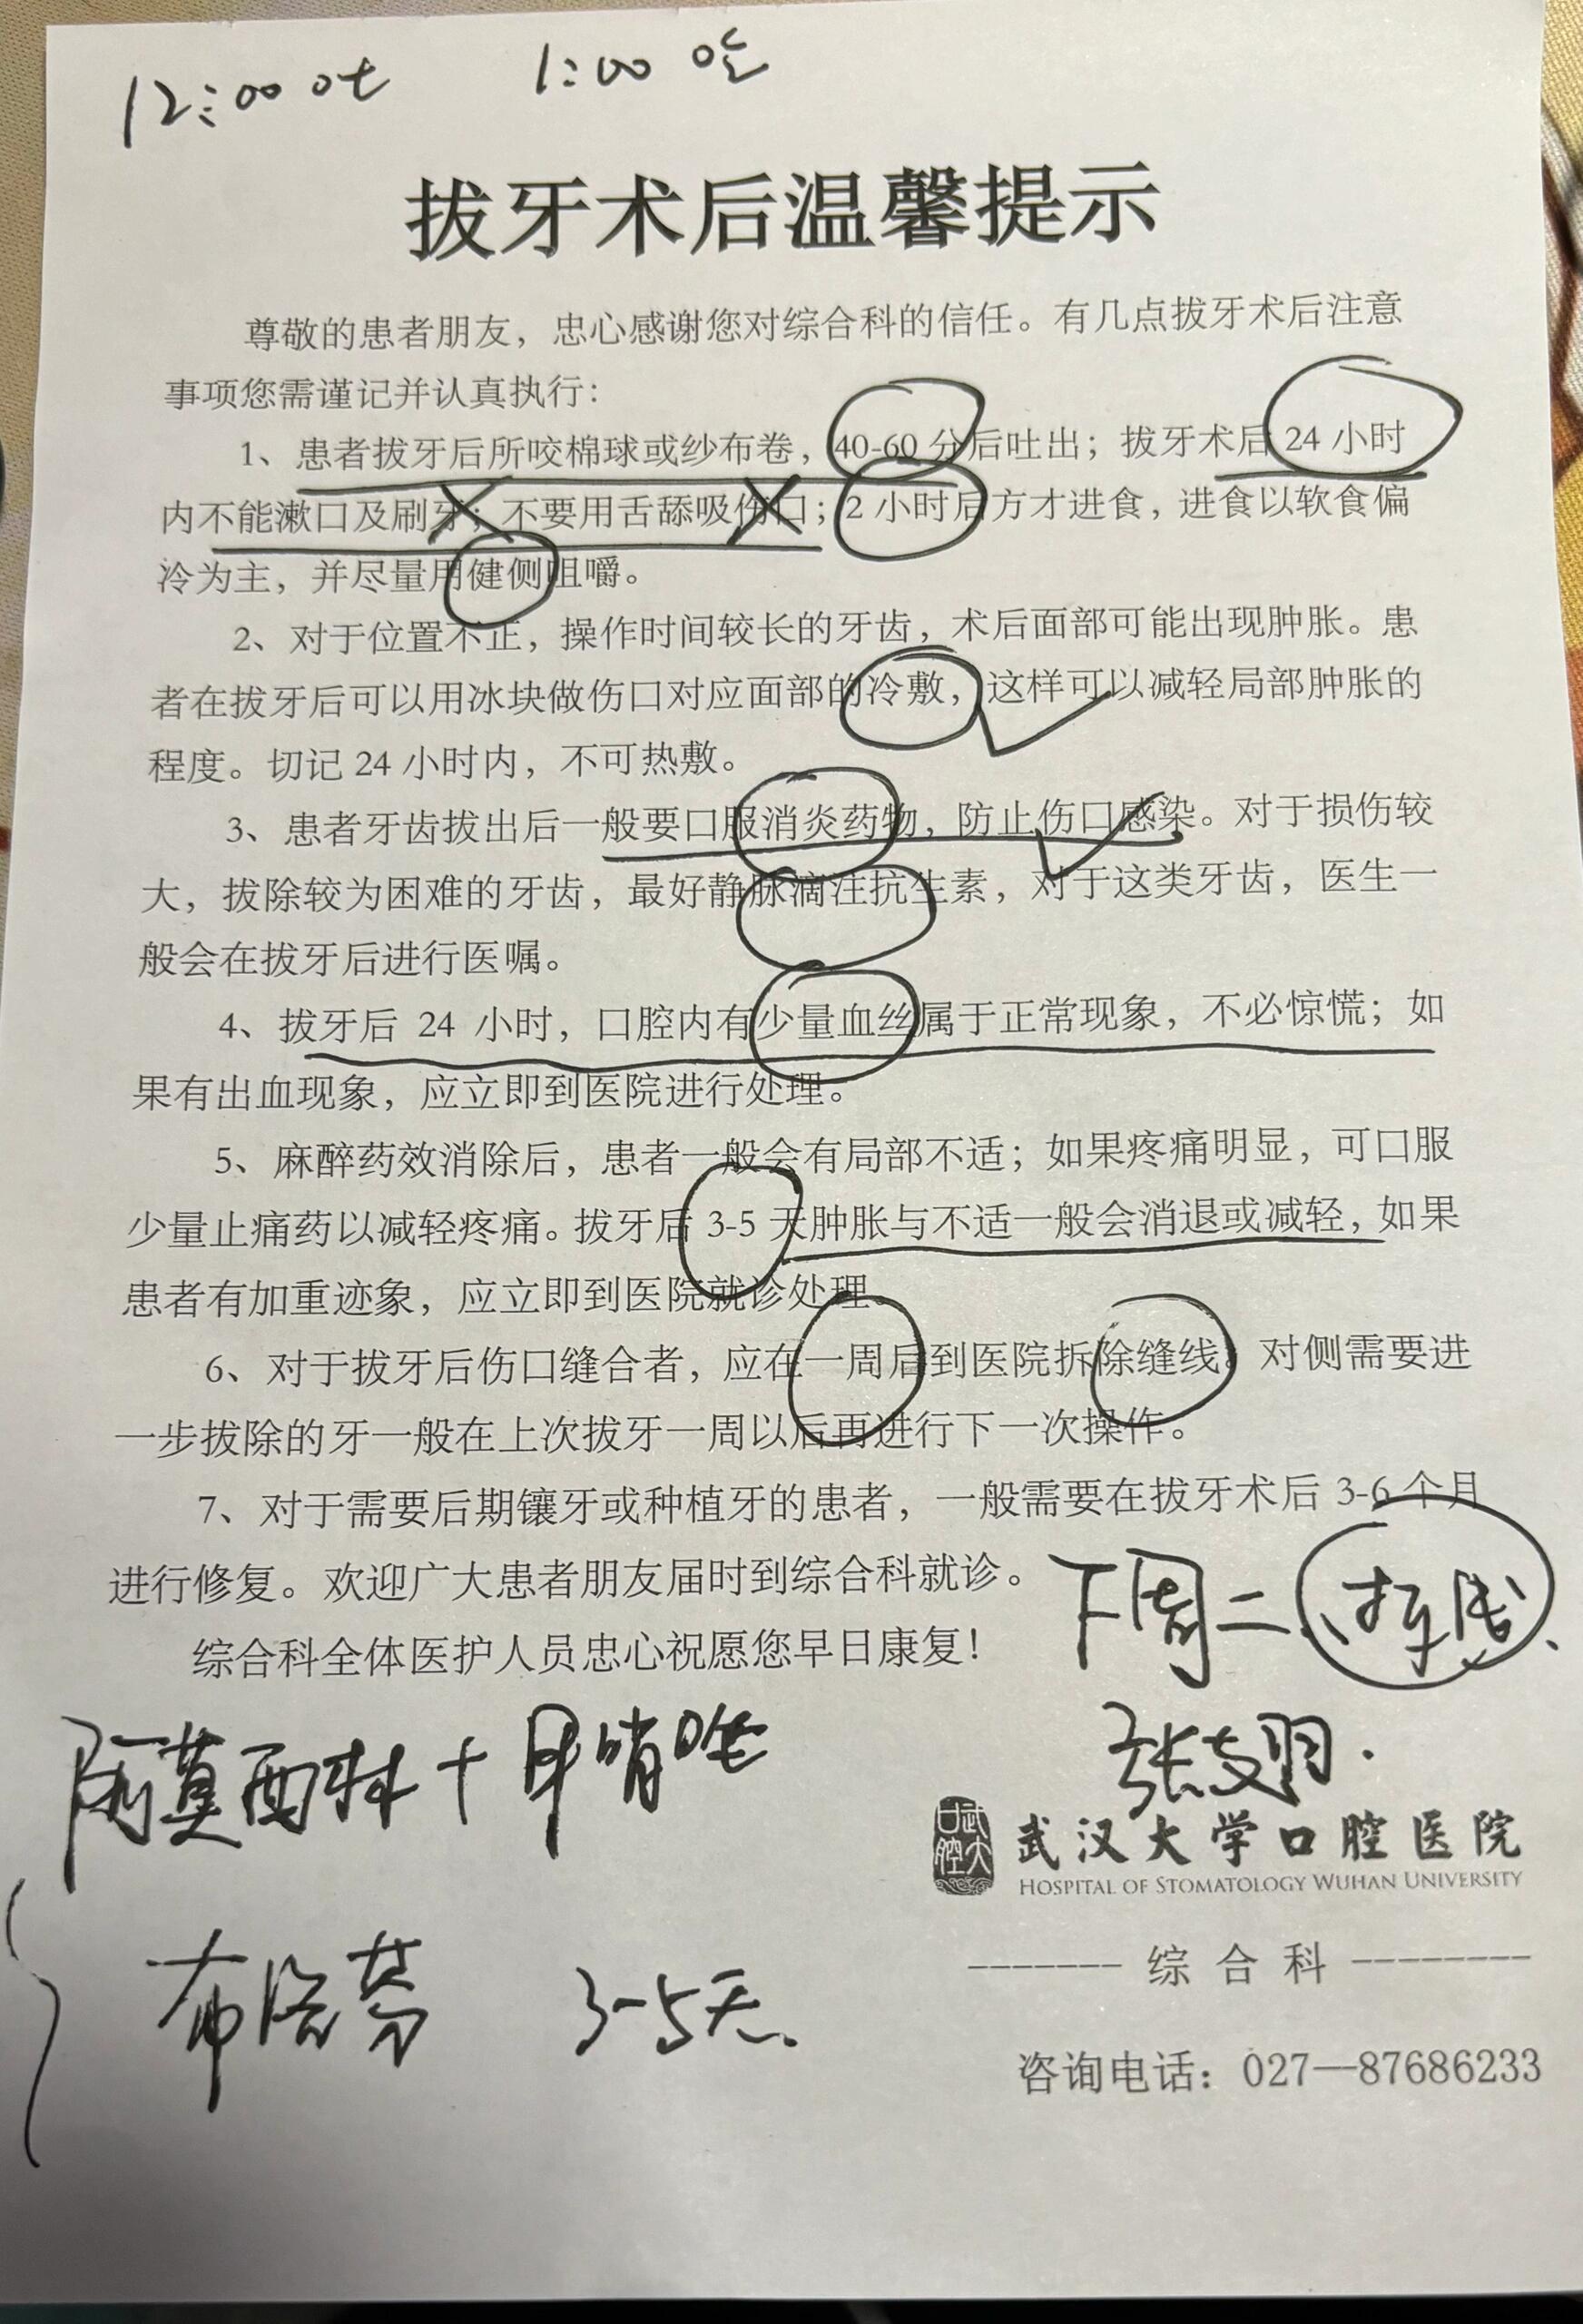 12:00 吐 1:00 吃
拔牙术后温馨提示
尊敬的患者朋友，忠心感谢您对综合科的信任。有几点拔牙术后注意
事项您需谨记并认真执行：
1、患者拔牙后所咬棉球或纱布卷，40-60 分后吐出；拔牙术后 24 小时
内不能漱口及刷牙；不要用舌舔吸伤口；2 小时后方才进食，进食以软食偏
冷为主，并尽量用健侧咀嚼。
2、对于位置不正，操作时间较长的牙齿，术后面部可能出现肿胀。患
者在拔牙后可以用冰块做伤口对应面部的冷敷，这样可以减轻局部肿胀的
程度。切记 24 小时内，不可热敷。
3、患者牙齿拔出后一般要口服消炎药物，防止伤口感染。对于损伤较
大，拔除较为困难的牙齿，最好静脉滴注抗生素，对于这类牙齿，医生一
般会在拔牙后进行医嘱。
4、拔牙后 24 小时，口腔内有少量血丝属于正常现象，不必惊慌；如
果有出血现象，应立即到医院进行处理。
5、麻醉药效消除后，患者一般会有局部不适；如果疼痛明显，可口服
少量止痛药以减轻疼痛。拔牙后 3-5 天肿胀与不适一般会消退或减轻，如果
患者有加重迹象，应立即到医院就诊处理。
6、对于拔牙后伤口缝合者，应在一周后到医院拆除缝线。对侧需要进
一步拔除的牙一般在上次拔牙一周以后再进行下一次操作。
7、对于需要后期镶牙或种植牙的患者，一般需要在拔牙术后 3-6 个月
进行修复。欢迎广大患者朋友届时到综合科就诊。
下周二
综合科全体医护人员忠心祝愿您早日康复！
阿莫西林 + 甲硝唑
武汉大学口腔医院
HOSPITAL OF STOMATOLOGY WUHAN UNIVERSITY
综合科
布洛芬 3-5天.
咨询电话：027—87686233